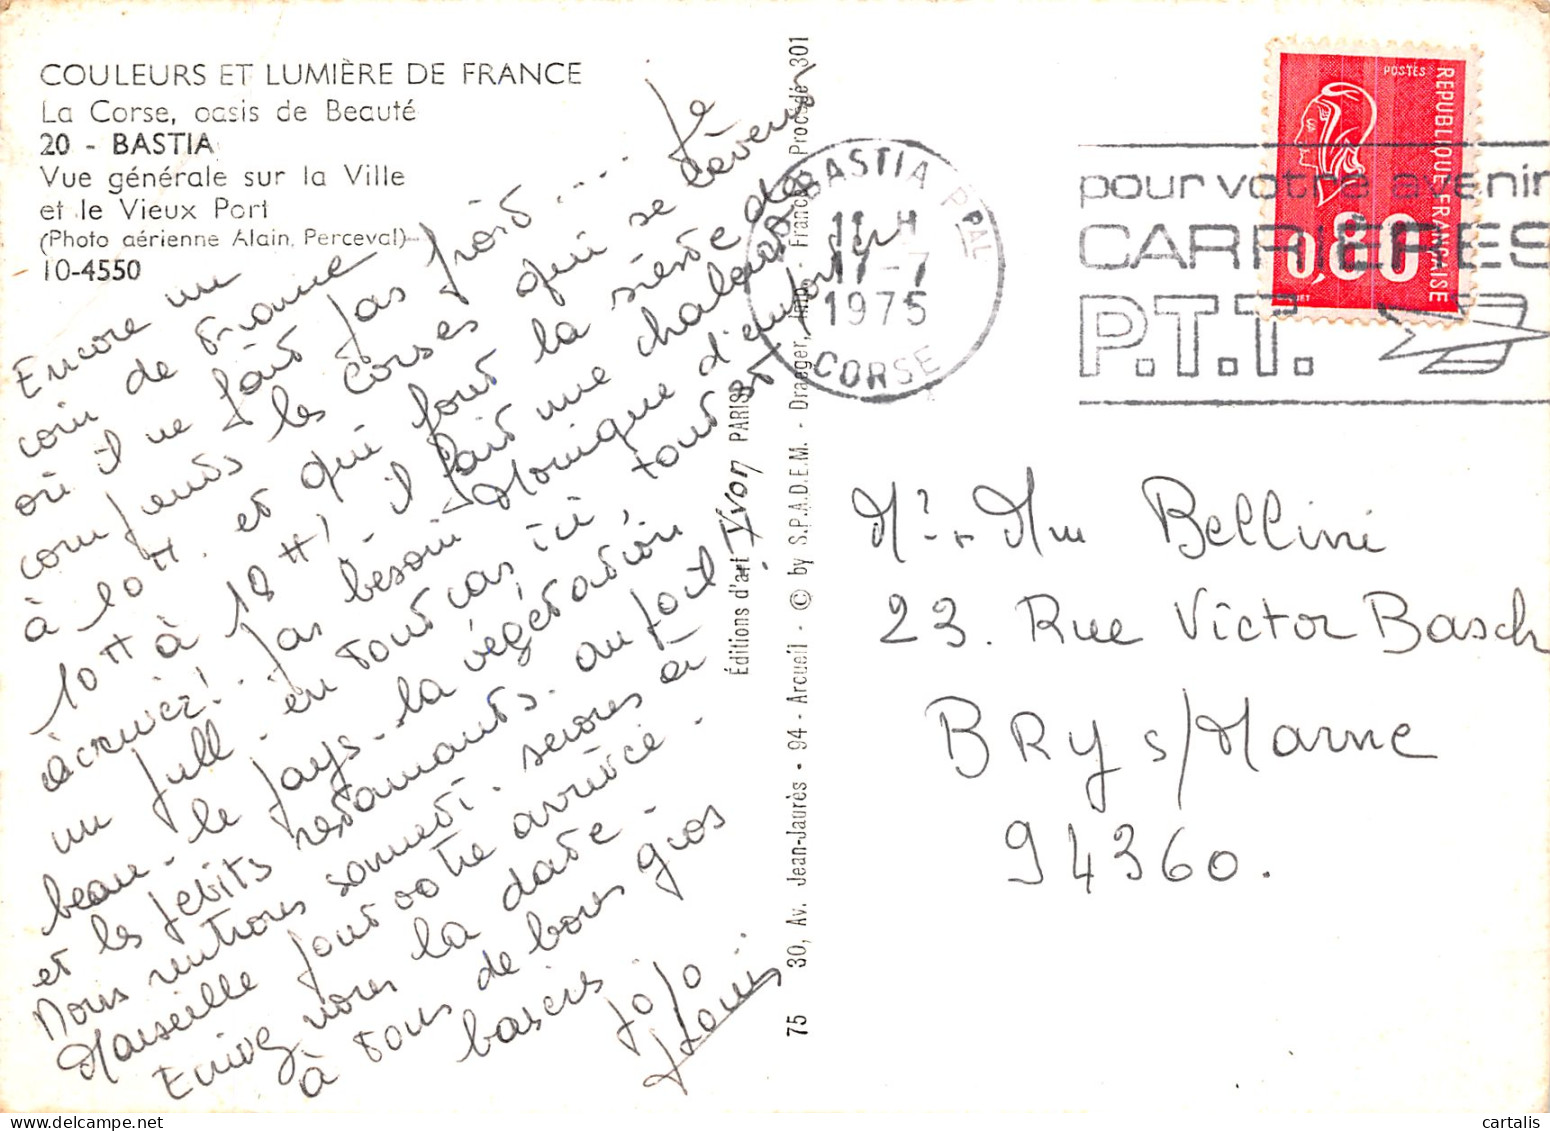 COULEURS ET LUMIÈRE DE FRANCE
La Corse, oasis de Beauté
20 - BASTIA
Vue générale sur la Ville
et le Vieux Port
(Photo aérienne Alain Perceval)
10-4550
Encore un
coin de France
où il ne fait pas froid... Je
comprends les Corses qui se lèvent
à 10H. et qui font la sieste de
10H à 18H, il fait une chaleur
à crever! pas besoin d'emporter
un pull. en tout cas, ici, tout est
beau. le pays. la végétation
et les petits restaurants. au poil!
Nous rentrons samedi. serons à
Marseille pour votre arrivée.
Envoyez nous la date.
à tous de bons gros
baisers.
Jojo
Louis
Éditions d'art Yvon PARIS
75 30, Av. Jean-Jaurès - 94 - Arcueil - © by S.P.A.D.E.M. - Draeger, Imp. - France Procédé 301
BASTIA PPAL
11 H
17-7
1975
CORSE
pour votre avenir
CARRIÈRES
P.T.T.
POSTES
REPUBLIQUE FRANÇAISE
0,80
Mr + Mme Bellini
23. Rue Victor Basch
BRY s/Marne
94360.
cartalis